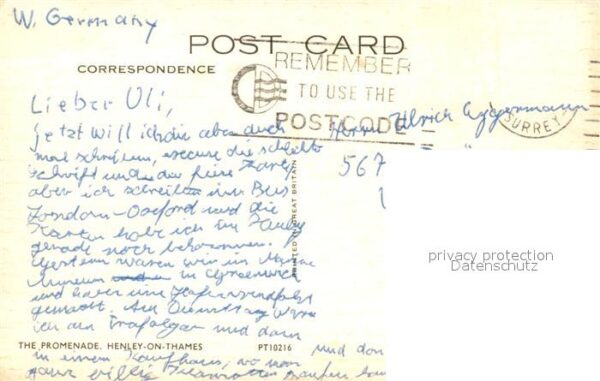 W. Germany
POST CARD
CORRESPONDENCE
REMEMBER
TO USE THE
POSTCODE
SURREY
Lieber Uli,
Herrn Ulrich
jetzt will ich dir aber auch
mal schreiben, excuse die schlechte
Schrift und
567
aber ich schreibe im Bus
1
London-Oxford und die
Karten habe ich im
gerade noch bekommen.
Gestern waren wir in
Museum in Greenwich
und haben eine Hafenrundfahrt
gemacht. Am Dienstag war
ich am Trafalgar und dann
PRINTED IN GREAT BRITAIN
privacy protection
Datenschutz
THE PROMENADE, HENLEY-ON-THAMES
PT10216
und
in einem Kaufhaus, wo man
ganz billig kaufen